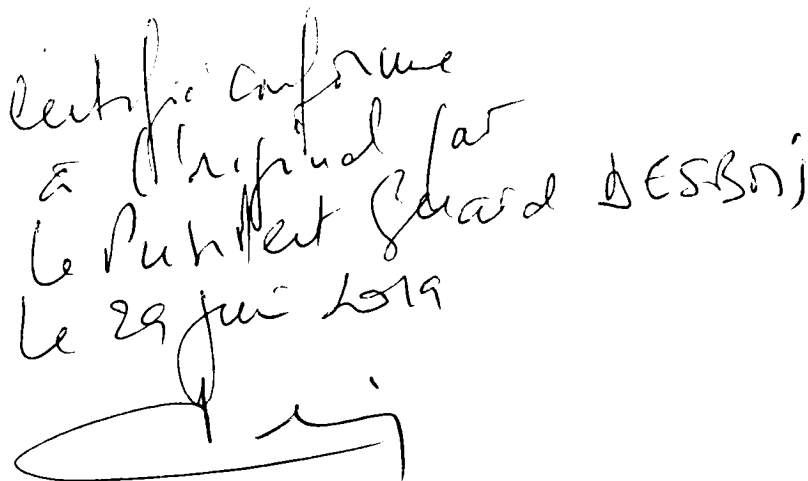 Certifié conforme
à l'original par
le Président Gérard DESBOIS
le 29 juin 2019